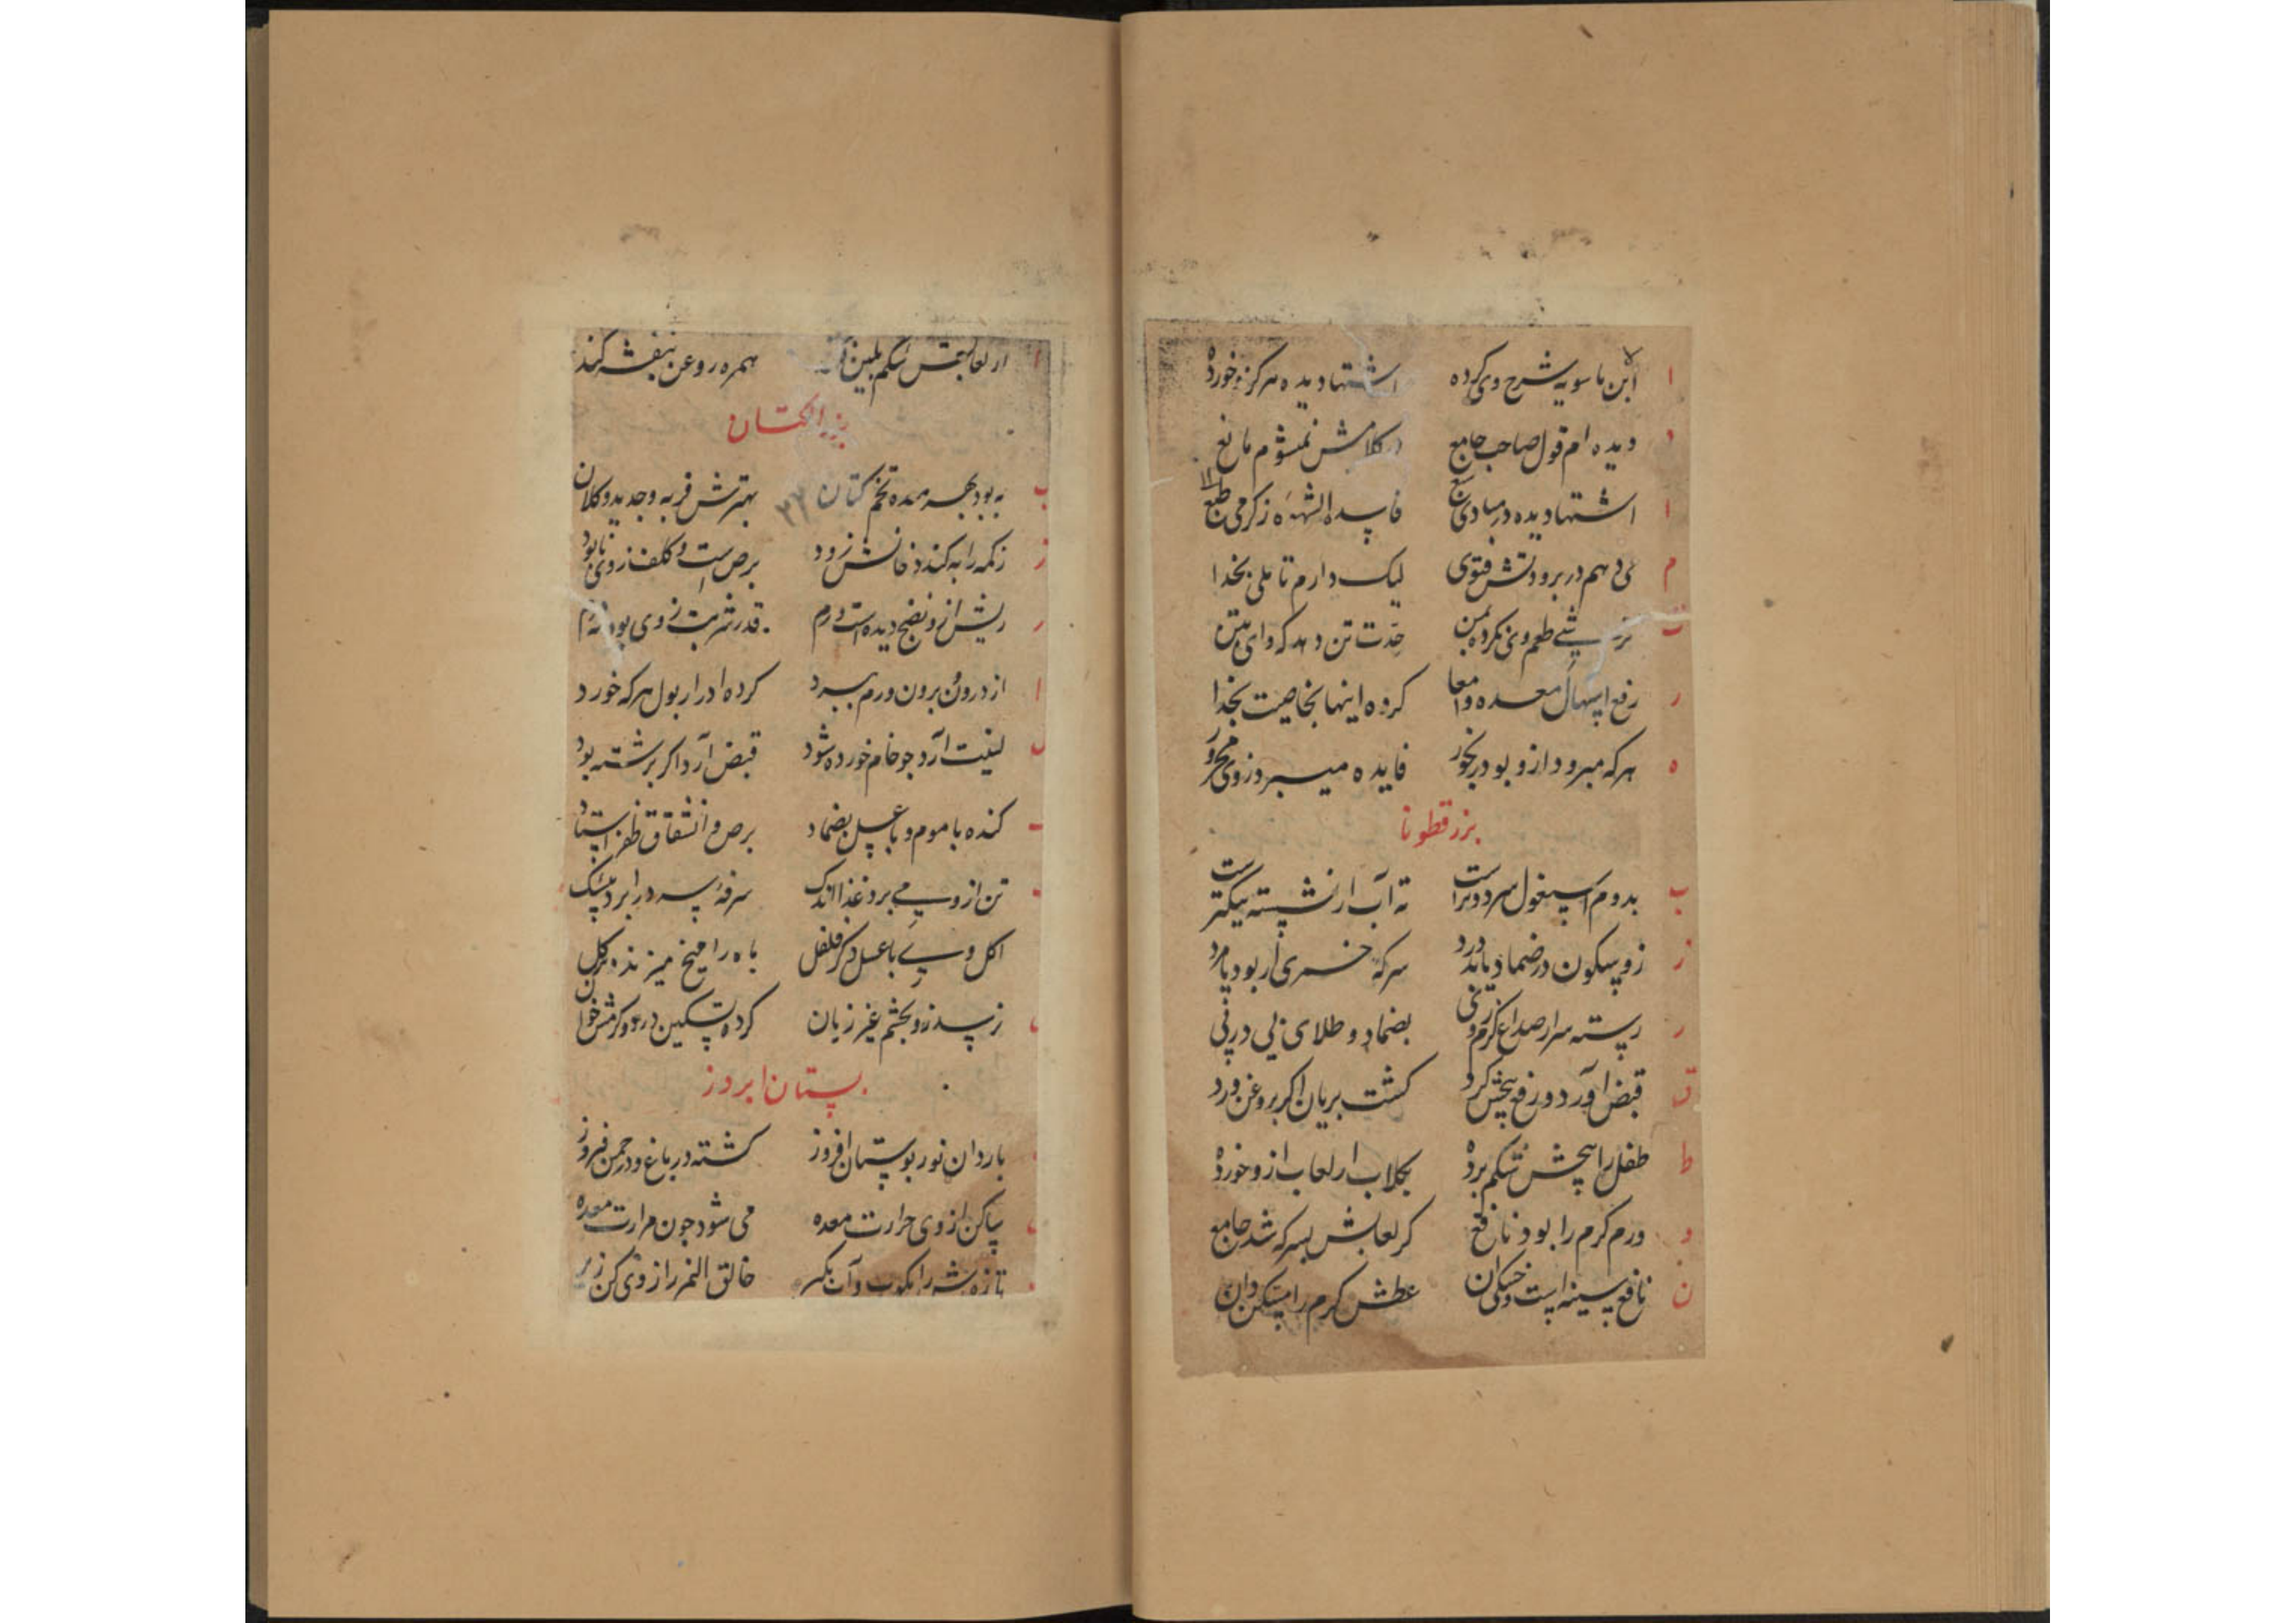 ا ابن ماسویه شرح وی کرده اشتها دیده هر کزو خورده
د دیده ام قول صاحب جامع در کلامش نمیشوم مانع
ا اشتها دیده در مبادی فاسد الشهوه ز کرمی طبع
م می دهم در برودتش فتوی لیک دارم تاملی بخدا
طعم وی نکرده حدت تن دهد که وای
ر رفع اسهال معده و امعا کرده اینها بخاصیت بخدا
ه هر که مبرود ازو بود رنجور فایده میبرد ز وی محرور
بزر قطونا
ب بدوم اسپغول سرد و تر است ته آب ار نشسته نیکتر است
ز زو سکون در ضماد یابد درد سرکه خمری ار بود یا مرد
ر رسته سر از صداع کرم بضماد و طلای پی در پی
ق قبض آورد و رفع پیچش کرد کشت بریان اکر بروغن ورد
ط طفل را پیچش شکم برده بکلاب ار لعاب ازو خورده
و ورم کرم را بود نافع کر لعابش بسرکه شد جامع
ن نافع سینه است و خشکی آن عطش کرم را مسکن دان
ا ار لعابش شکم بلین همره روغن بنفشه کند
بزر الکتان
ب به بود بهر معده تخم کتان بهترش فربه و جدید و کلان
۳۲
ز زکمه را به کند دخانش زود برص است و کلف ز وی نابود
ر ریش ازو نضج دیده است ورم قدر شربت ز وی بود
ا از درون و برون ورم ببرد کرده ادرار بول هر که خورد
ل لینیت آرد جو خام خورده شود قبض آرد اکر برشته بود
کنده با موم و با عسل بضماد برص و انشقاق ظفر
تن ازو می برد غذا اندک سرفه سرد را برد بیشک
اکل وی با عسل دکر فلفل باه را میخ میزند
ز سدزو بچشم غیر زیان کرده تسکین درد
بستان ابروز
بارد آن نور بوستان افروز کشته در باغ و در چمن فیروز
ساکن از وی حرارت معده می شود چون مرارت معده
تازه‌ش را بکوب و آب بکیر خالق النمر را ز وی کن زیر